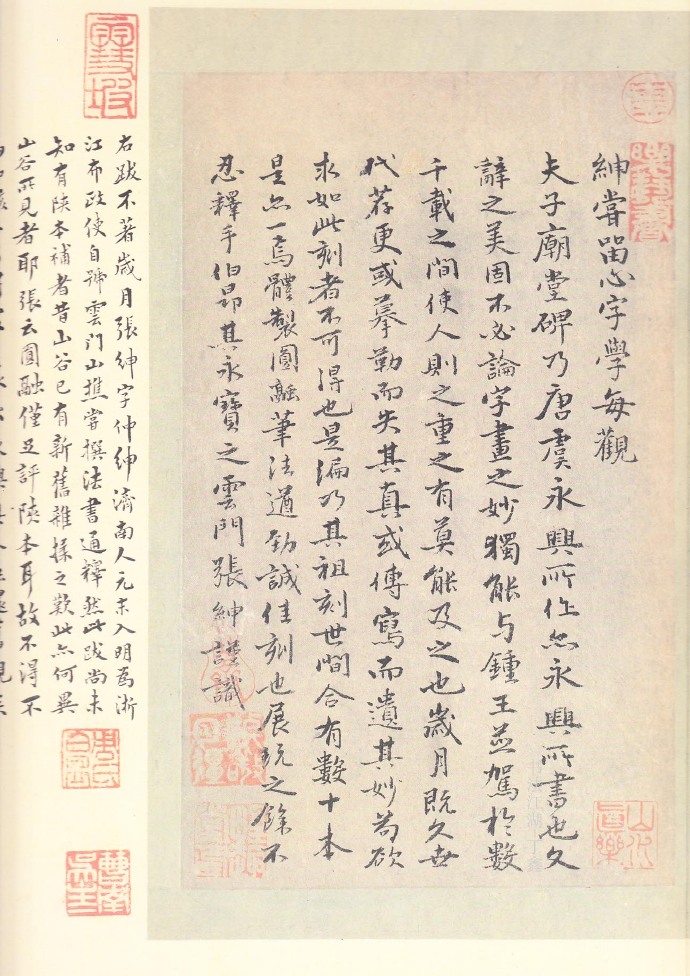 紳嘗留心字學每觀
夫子廟堂碑乃唐虞永興所作亦永興所書也文
辭之美固不必論字畫之妙獨能与鍾王並駕於數
千載之間使人則之重之有莫能及之也歲月既久世
代荐更或摹勒而失其真或傳寫而遺其妙苟欲
求如此刻者不可得也是編乃其祖刻世間合有數十本
是亦一焉體製圓融筆法遒勁誠佳刻也展玩之餘不
忍釋手伯昂其永寶之雲門張紳謹識
右跋不著歲月張紳字仲紳濟南人元末入明為浙
江布政使自號雲門山樵嘗撰法書通釋然此跋尚未
知有陝本補者昔山谷已有新舊雜揉之歎此亦何異
山谷所見者耶張云圓融僅足評陝本耳故不得不
雪坡
山水真樂